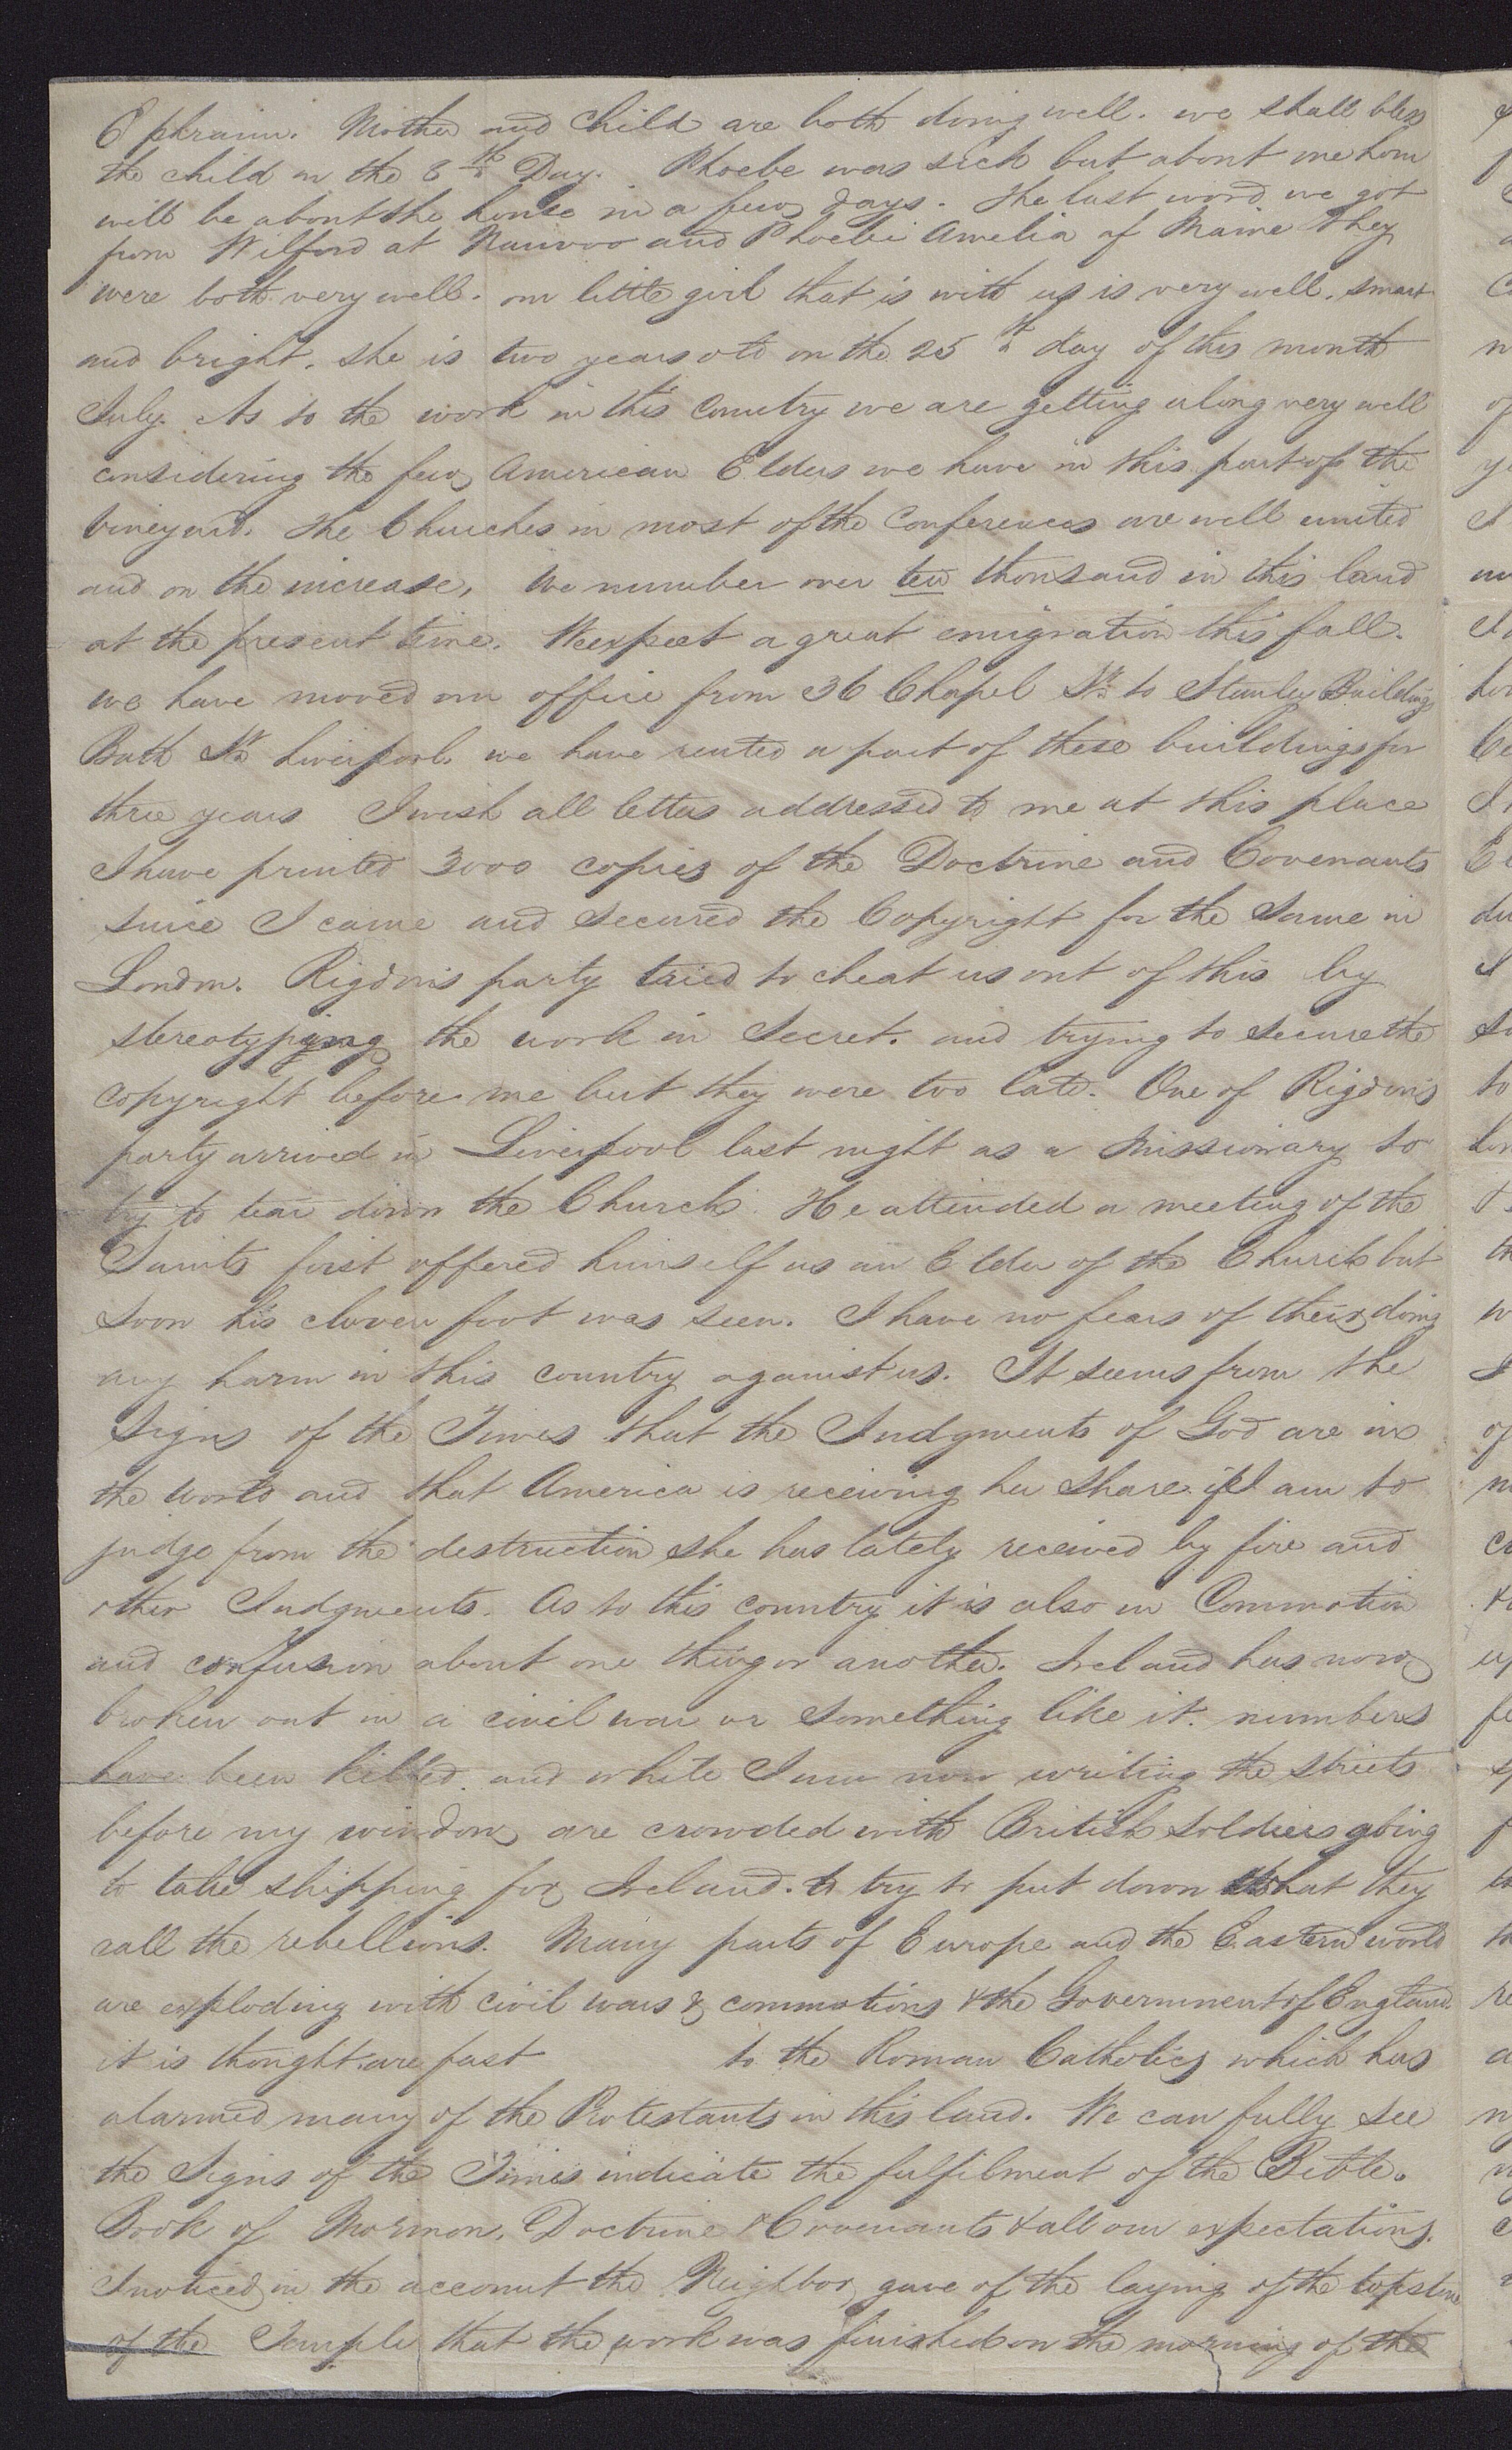 Ephraim. Mother and Child are both doing well. we shall bless
the child on the 8th Day. Phoebe was sick but about one hour
will be about the house in a few days. The last word we got
from Wilford at Nauvoo and Phoebe Amelia of Maine they
were both very well. our little girl that is with us is very well. smart
and bright. she is two years old on the 25th day of this month
July. As to the work in this Country we are getting along very well
considering the few American Elders we have in this part of the
vineyard. The Churches in most of the Conferences are well united
and on the increase, We number over ten thousand in this land
at the present time. We expect a great emigration this fall.
we have moved our office from 36 Chapel St. to Stanley Buildings
Bath St. Liverpool. we have rented a part of these buildings for
three years I wish all letters addressed to me at this place
I have printed 3000 copies of the Doctrine and Covenants
since I came and secured the Copyright for the same in
London. Rigdon's party tried to cheat us out of this by
stereotyping the work in Secret. and trying to secure the
copyright before me but they were too late. One of Rigdon's
party arrived in Liverpool last night as a missionary to
try to tear down the Church. He attended a meeting of the
Saints first offered himself as an Elder of the Church but
soon his cloven foot was seen. I have no fears of their doing
any harm in this country against us. It seems from the
signs of the Times that the Judgments of God are in
the world and that America is receiving her share if I am to
judge from the destruction she has lately received by fire and
other Judgments. As to this country it is also in Commotion
and confusion about one thing or another. Ireland has now
broken out in a civil war or something like it. numbers
have been killed. and while I am now writing the streets
before my window are crowded with British soldiers going
to take shipping for Ireland. to try to put down what they
call the rebellions. Many parts of Europe and the Eastern world
are exploding with civil wars & commotions & the Government of England
it is thought are fast to the Roman Catholics which has
alarmed many of the Protestants in this land. We can fully see
the Signs of the Times indicate the fulfilment of the Bible.
Book of Mormon, Doctrine & Covenants & all our expectations.
I noticed in the account the Neighbor gave of the laying of the topstone
of the Temple that the work was finished on the morning of the